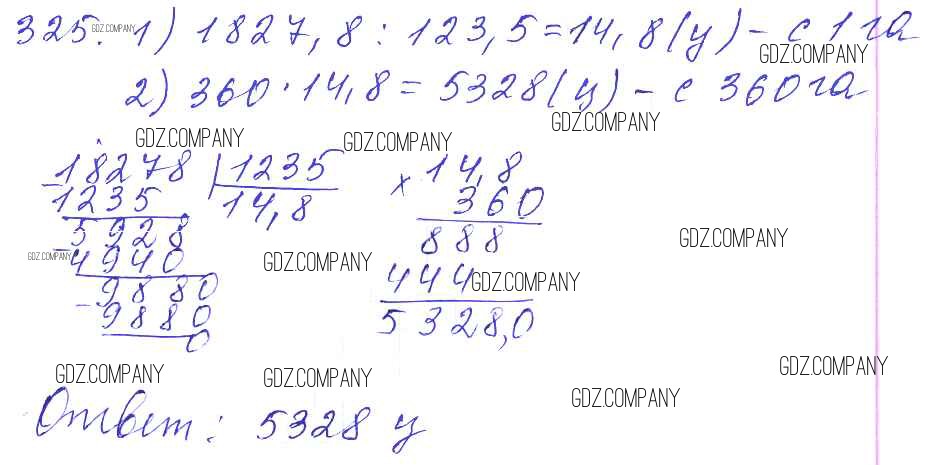 325. 1) 1827,8 : 123,5 = 14,8 (ц) – с 1 га
2) 360 · 14,8 = 5328 (ц) – с 360 га
GDZ.COMPANY
GDZ.COMPANY
GDZ.COMPANY
GDZ.COMPANY
GDZ.COMPANY
18278 | 1235
1235 14,8
5928
4940
9880
9880
0
× 14,8
360
888
444
5328,0
GDZ.COMPANY
GDZ.COMPANY
GDZ.COMPANY
GDZ.COMPANY
GDZ.COMPANY
GDZ.COMPANY
GDZ.COMPANY
GDZ.COMPANY
Ответ: 5328 ц